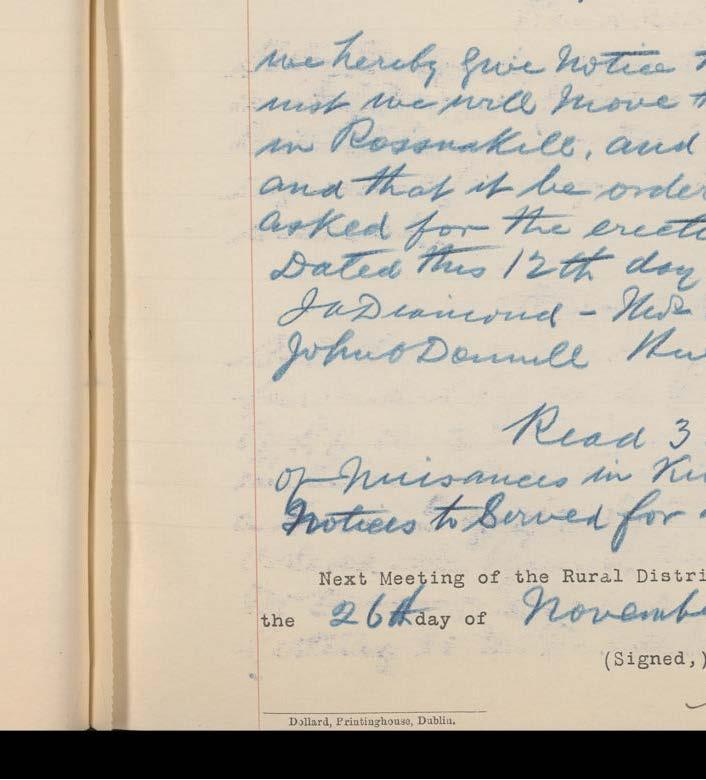 we hereby give Notice
inst we will move
in Rossnakill, and
and that it be order
asked for the erect
Dated this 12th day
Jn Diamond -
John O Donnell
Read 3
of Nuisances in
Notices to Served for
Next Meeting of the Rural Distri
the 26th day of Novemb
(Signed,)
Dollard, Printinghouse, Dublin.